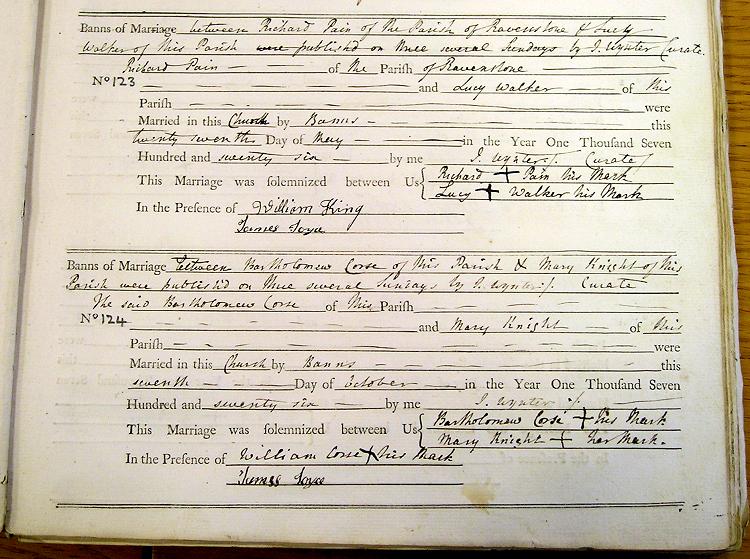 Banns of Marriage between Richard Pain of the Parish of Ravenstone & Lucy
Walker of this Parish were publish'd on three several Sundays by J. Wynter Curate.
Richard Pain of the Parish of Ravenstone
No 123 and Lucy Walker of this
Parish were
Married in this Church by Banns this
twenty seventh Day of May in the Year One Thousand Seven
Hundred and seventy six by me J. Wynter Curate
This Marriage was solemnized between Us { Richard + Pain his Mark
Lucy + Walker his Mark
In the Presence of William King
James Joyce
Banns of Marriage between Bartholomew Corse of this Parish & Mary Knight of this
Parish were publish'd on three several Sundays by J. Wynter Curate
The said Bartholomew Corse of this Parish
No 124 and Mary Knight of this
Parish were
Married in this Church by Banns this
seventh Day of October in the Year One Thousand Seven
Hundred and seventy six by me J. Wynter
This Marriage was solemnized between Us { Bartholomew Corse + his Mark
Mary Knight + her Mark.
In the Presence of William Corse + his Mark
James Joyce